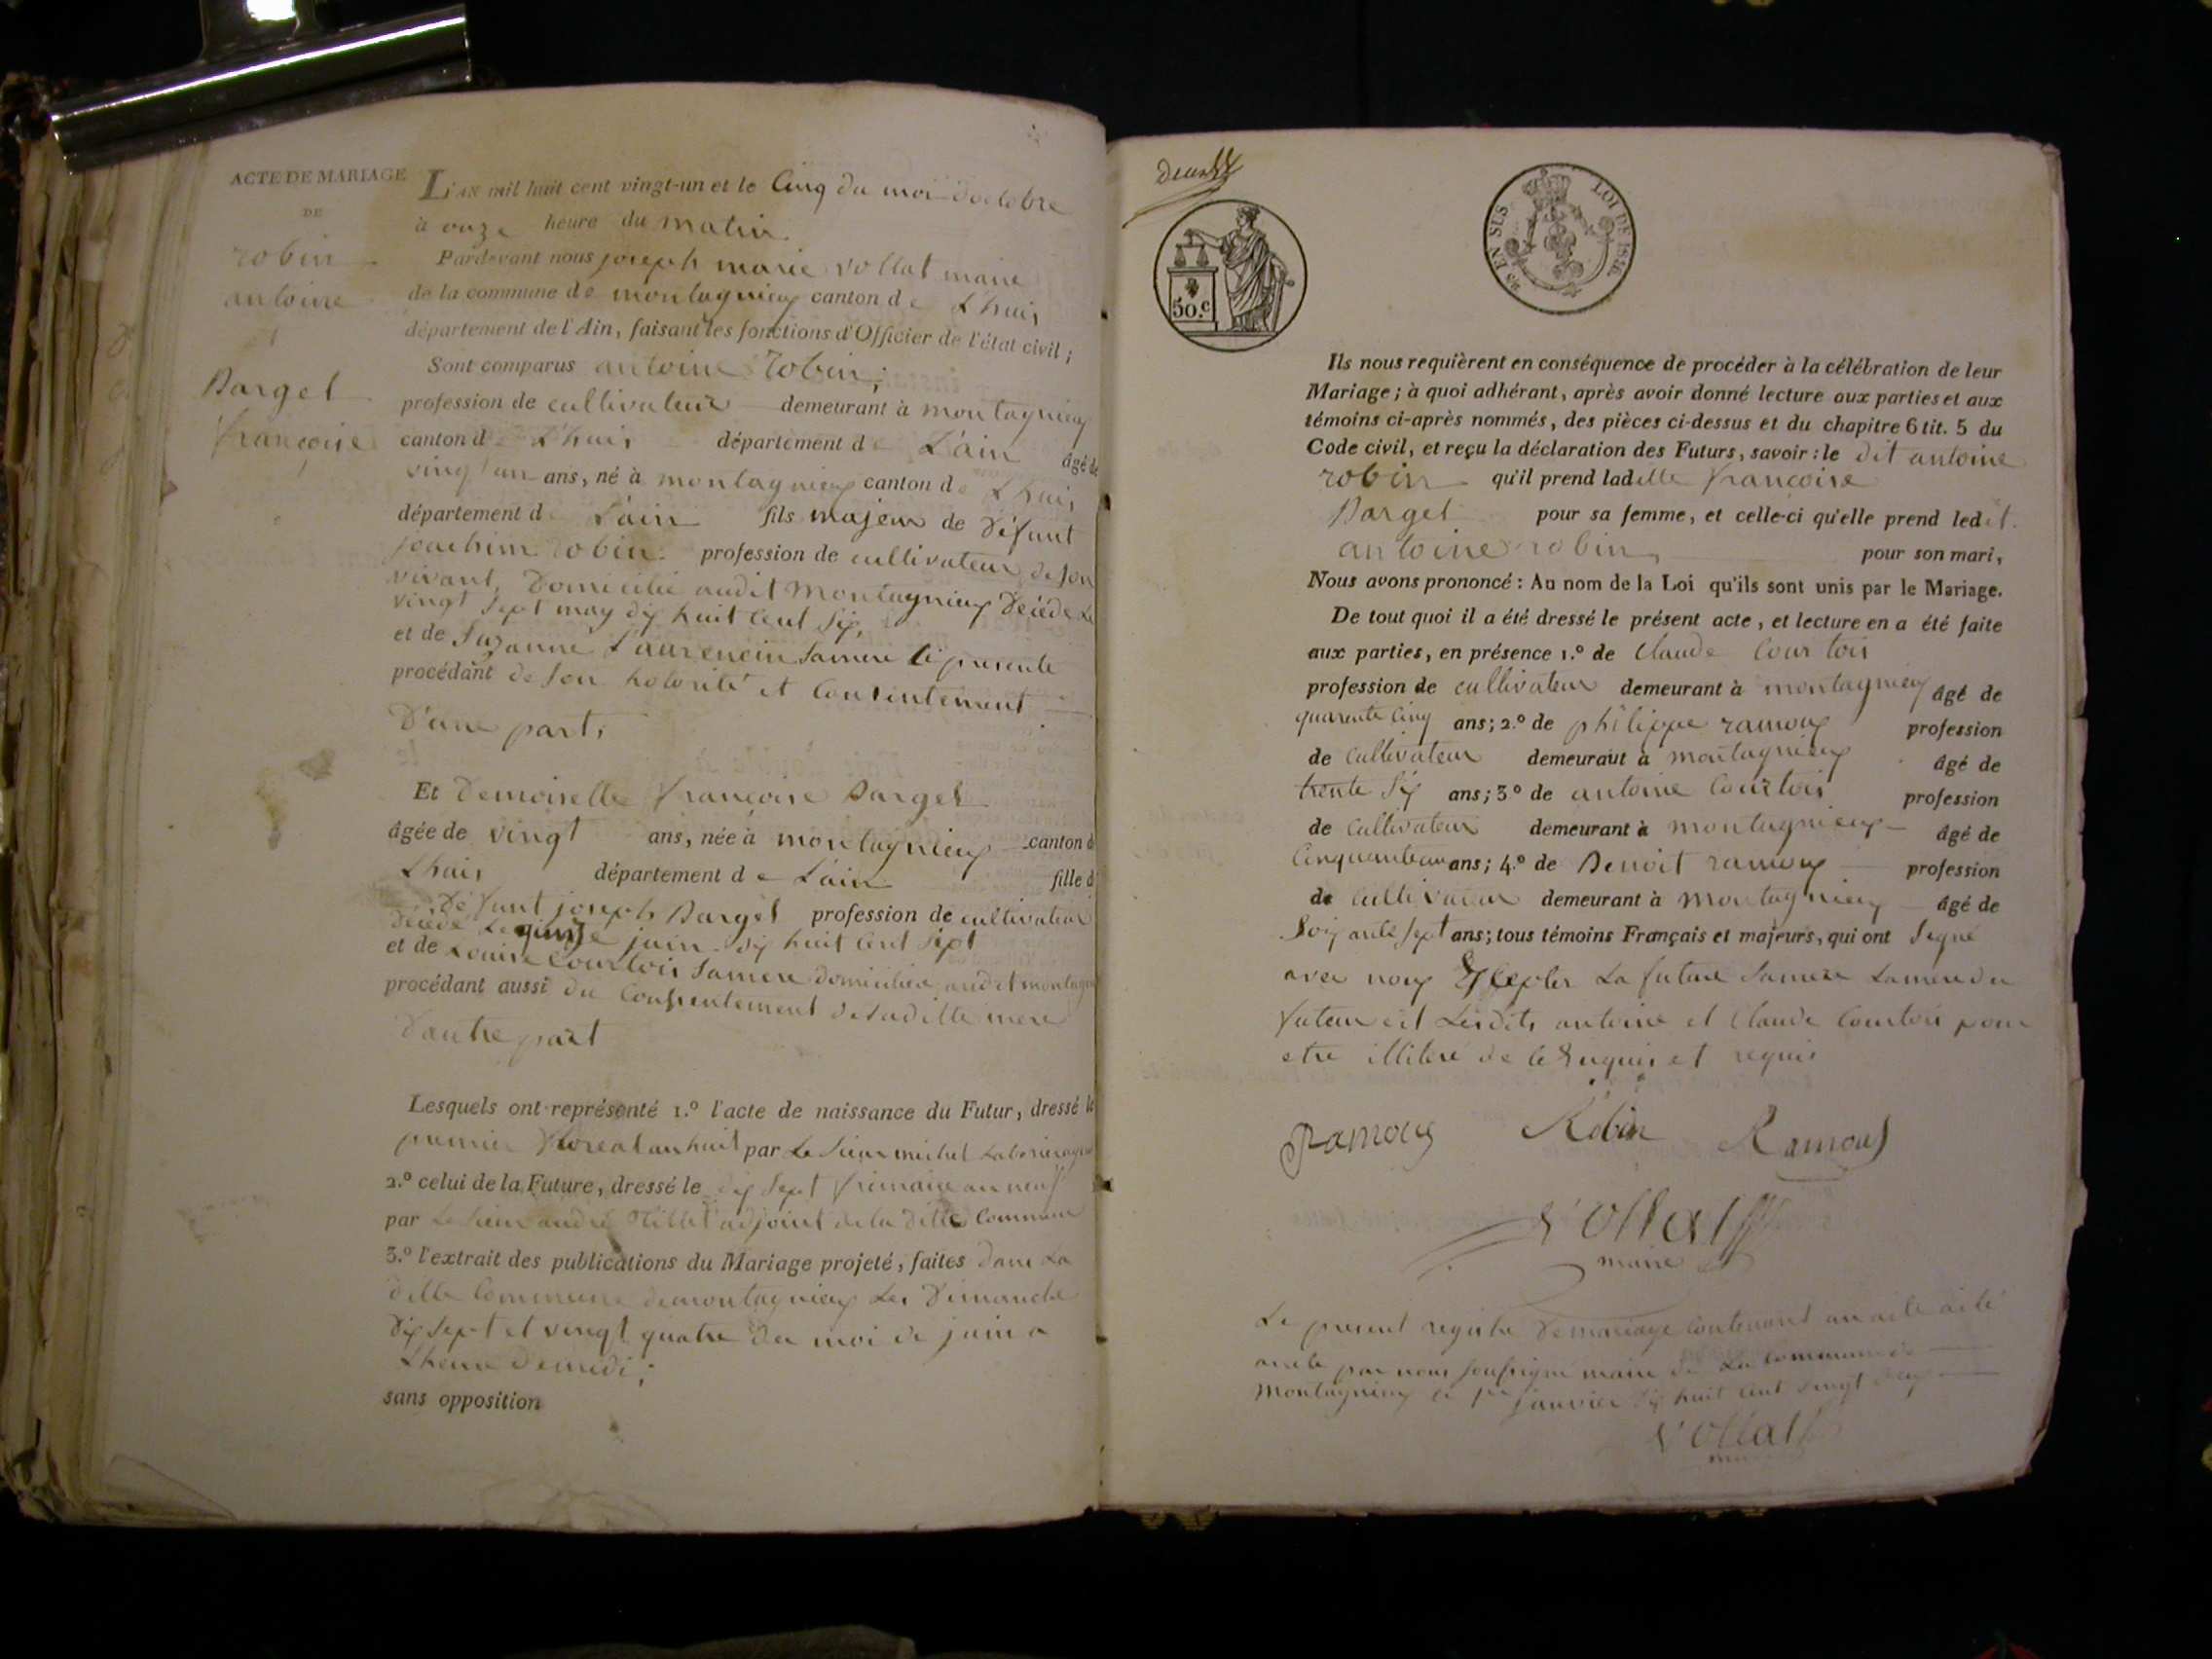 ACTE DE MARIAGE
DE
robin
antoine
Darget
françoise
L'AN mil huit cent vingt-un et le Cinq du moi doctobre
à onze heure du matin
Pardevant nous joseph marie vollat maire
de la commune de montagnieux canton de Lhuis
département de l'Ain, faisant les fonctions d'Officier de l'état civil ;
Sont comparus antoine robin ;
profession de cultivateur demeurant à montagnieux
canton de Lhuis département de L'ain âgé de
vingt un ans, né à montagnieux canton de Lhuis
département d L'ain fils majeur de défunt
joachim robin profession de cultivateur de son
vivant, domicilié audit montagnieux décédé Le
vingt sept may dix huit cent six,
et de Suzanne Laurencin sa mere ci presente
procédant de son volonté et consentement
D'une part ;
Et Demoiselle françoise Darget
âgée de vingt ans, née à montagnieux canton d
Lhuis département de L'ain fille d
défunt joseph Darget profession de cultivateur
décédé Le quinze juin dix huit cent sept
et de Louise Courtois sa mere domiciliée audit montagn
procédant aussi du consentement de saditte mere
D'autre part
Lesquels ont représenté 1.º l'acte de naissance du Futur, dressé le
premier floreal an huit par Le sieur michel
2.º celui de la Future, dressé le dix sept frimaire an neuf
par Le sieur andré adjoint de la ditte Commune
3.º l'extrait des publications du Mariage projeté, faites dans La
ditte Commune de montagnieux Les Dimanche
dix sept et vingt quatre du moi de juin a
Lheure de midi ;
sans opposition
50.c
EN SUS LOI DE 1816
Ils nous requièrent en conséquence de procéder à la célébration de leur
Mariage ; à quoi adhérant, après avoir donné lecture aux parties et aux
témoins ci-après nommés, des pièces ci-dessus et du chapitre 6 tit. 5 du
Code civil, et reçu la déclaration des Futurs, savoir : le dit antoine
robin qu'il prend laditte françoise
Darget pour sa femme, et celle-ci qu'elle prend ledit
antoine robin, pour son mari,
Nous avons prononcé : Au nom de la Loi qu'ils sont unis par le Mariage.
De tout quoi il a été dressé le présent acte, et lecture en a été faite
aux parties, en présence 1.º de Claude Courtois
profession de cultivateur demeurant à montagnieux âgé de
quarente Cinq ans ; 2.º de philippe ramoux profession
de Cultivateur demeurant à montagnieux âgé de
trente Six ans ; 3º de antoine Courtois profession
de Cultivateur demeurant à montagnieux âgé de
Cinquante un ans ; 4.º de Benoit ramoux profession
de Cultivateur demeurant à montagnieux âgé de
Soixante sept ans ; tous témoins Français et majeurs, qui ont signé
avec nous Excepter La future sa mere La mere du
futeur et Lesdits antoine et Claude Courtois pour
etre illiteré de ce enquis et requis
Ramoux Robin Ramoux
Vollat
maire
Le present registre de mariage contenant un acte a été
arreté par nous soussigné maire de La Commune de
Montagnieux ce 1er janvier dix huit cent vingt deux
Vollat
maire